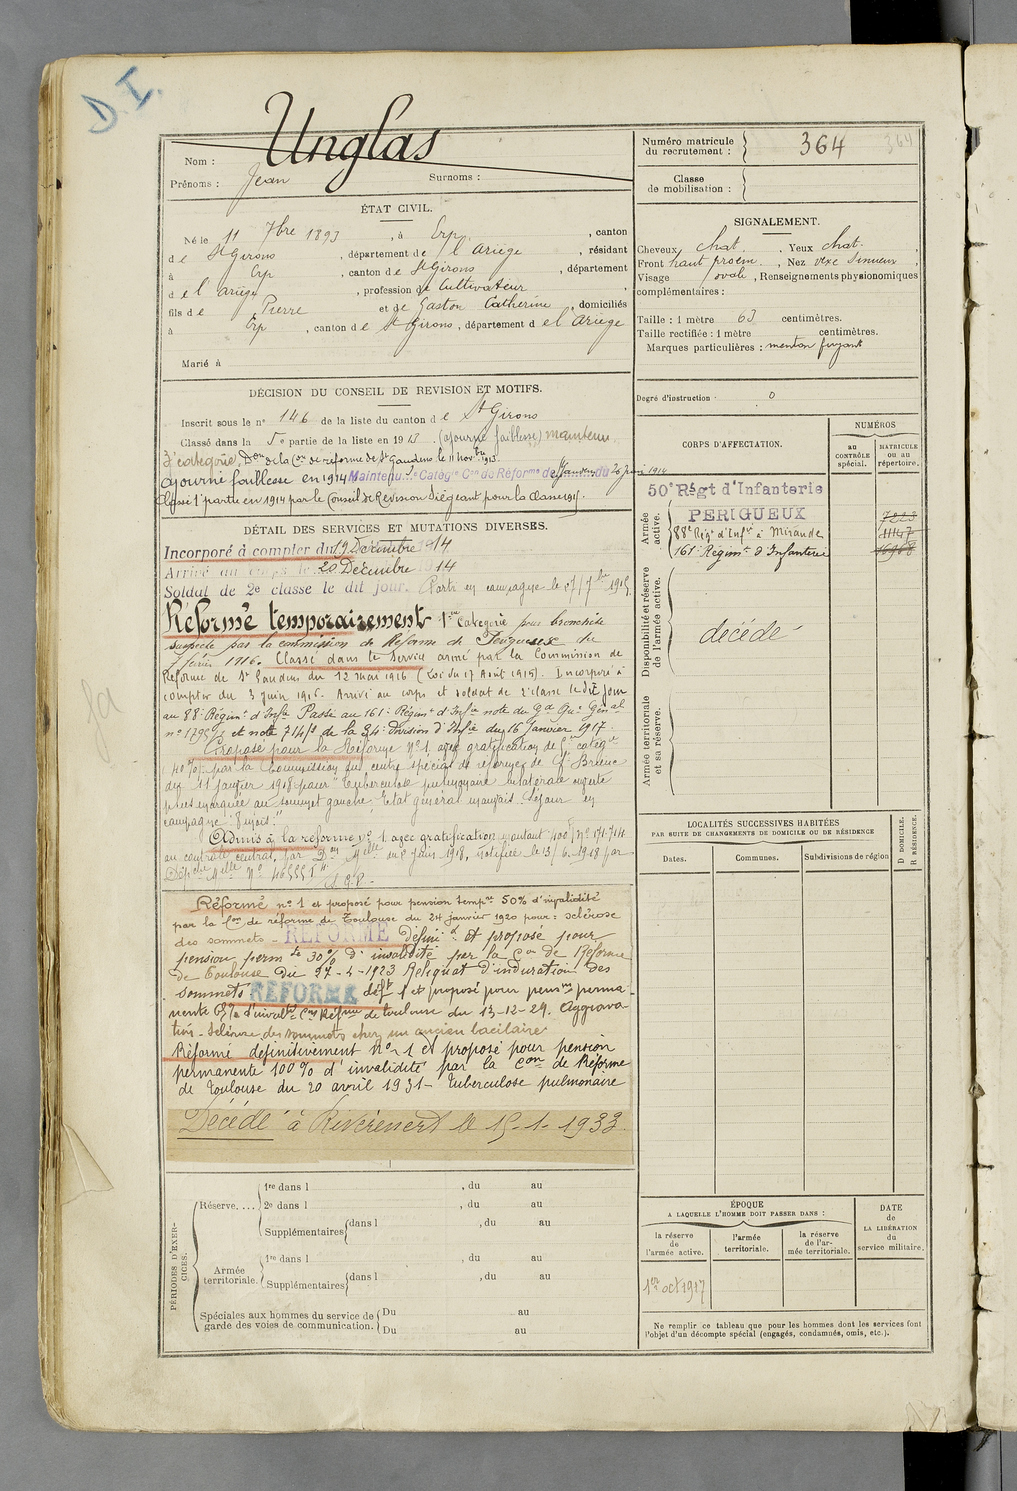 D.I.
Nom : Unglas
Prénoms : Jean Surnoms :
Numéro matricule du recrutement : 364 364
Classe de mobilisation :
ÉTAT CIVIL.
Né le 11 7bre 1893, à Erp, canton
de St Girons, département de l'Ariège, résidant
à Erp, canton de St Girons, département
de l'Ariège, profession de Cultivateur
fils de Pierre et de Gaston Catherine, domiciliés
à Erp, canton de St Girons, département de l'Ariège
Marié à
SIGNALEMENT.
Cheveux chat. Yeux chat.
Front haut proem. Nez vexe sinueux
Visage ovale, Renseignements physionomiques
complémentaires :
Taille : 1 mètre 63 centimètres.
Taille rectifiée : 1 mètre centimètres.
Marques particulières : menton fuyant
Degré d'instruction : 0
DÉCISION DU CONSEIL DE REVISION ET MOTIFS.
Inscrit sous le no 146 de la liste du canton de St Girons
Classé dans la 5e partie de la liste en 1913 (ajourné faiblesse) maintenu
3e catégorie, Don de la Con de réforme de St Gaudens le 11 novbre 1913
ajourné faiblesse en 1914 Maintenu Catégie Con de Réforme de St Gaudens du 26 1914
Classé 1e partie en 1914 par le Conseil de Revision siégeant pour la classe 1915.
DÉTAIL DES SERVICES ET MUTATIONS DIVERSES.
Incorporé à compter du 19 Décembre 1914
Arrivé au corps le 20 Décembre 1914
Soldat de 2e classe le dit jour. Parti en campagne le 1915.
Réformé temporairement 1re Catégorie pour bronchite
suspecte par la commission de Réforme de Périgueux du
7 février 1916. Classé dans le Service armé par la Commission de
Réforme de St Gaudens du 12 mai 1916 (Loi du 17 Août 1915). Incorporé à
compter du 3 juin 1916. Arrivé au corps et soldat de 2e classe le dit jour
au 88e Régimt d'Infie Passé au 161e Régimt d'Infie note du Gd Qer Génal
no et note 714/1 de la 34e division d'Infie du 16 Janvier 1917.
Proposé pour la Réforme No 1 avec gratification de 5e catégie
(40%) par la Commission du centre spécial de réformes de St Brieuc
du 11 janvier 1918 pour "Tuberculose pulmonaire bilatérale ouverte
plus marquée au sommet gauche. Etat général mauvais. Séjour en
campagne
Admis à la réforme no 1 avec gratification No 171.714
au contrôle central, par Don Melle du 8 Juin 1918, notifiée le 13/6.1918 par
Dépêche Melle No 46555
Réformé no 1 et proposé pour pension tempre 50% d'invalidité
par la Con de réforme de Toulouse du 24 janvier 1920 pour : sclérose
des sommets - REFORMÉ défini et proposé pour
pension perm te 30% d'invalidité par la Con de Réforme
de Toulouse du 27-4-1923 Reliquat d'induration des
sommets REFORMÉ déft 1 et proposé pour pension perma-
nente invalté Con Réfme de Toulouse du 13-12-29. Aggrava-
tion - Sclérose des sommets chez un ancien bacilaire
Réformé définitivement No 1 et proposé pour pension
permanente 100% d'invalidité par la Con de Réforme
de Toulouse du 20 avril 1931 - tuberculose pulmonaire
Décédé à Rivèrenert le 15-1-1933.
CORPS D'AFFECTATION.
NUMÉROS
au CONTRÔLE spécial.
MATRICULE ou au répertoire.
Armée active.
50e Régt d'Infanterie
PERIGUEUX 7223
88e Regt d'Infie à Mirande 11147
161e Régimt d'Infanterie 16968
Disponibilité et réserve de l'armée active.
décédé
Armée territoriale et sa réserve.
LOCALITÉS SUCCESSIVES HABITÉES
PAR SUITE DE CHANGEMENTS DE DOMICILE OU DE RÉSIDENCE
Dates. Communes. Subdivisions de région
D. DOMICILE. R. RÉSIDENCE.
ÉPOQUE
A LAQUELLE L'HOMME DOIT PASSER DANS :
la réserve de l'armée active.
l'armée territoriale.
la réserve de l'armée territoriale.
DATE de LA LIBÉRATION du service militaire.
1er oct 1917
Ne remplir ce tableau que pour les hommes dont les services font
l'objet d'un décompte spécial (engagés, condamnés, omis, etc.).
PÉRIODES D'EXERCICES.
Réserve....
1re dans l , du au
2e dans l , du au
Supplémentaires dans l , du au
Armée territoriale.
1re dans l , du au
Supplémentaires dans l , du au
Spéciales aux hommes du service de
garde des voies de communication.
Du au
Du au